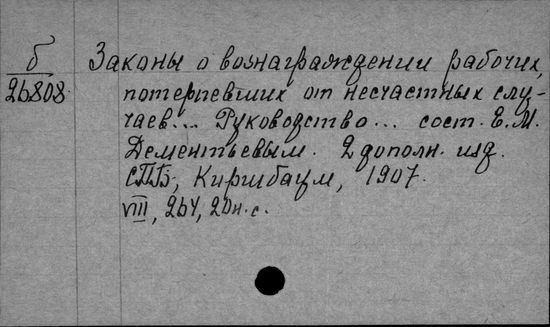 б Законы о вознаграждении рабочих,
26808. потерпевших от несчастных слу-
чаев... Руководство... сост. Е.М.
Дементьевым. 2 дополн. изд.
СПБ, Киршбаум, 1907.
VIII, 264, 20н.с.